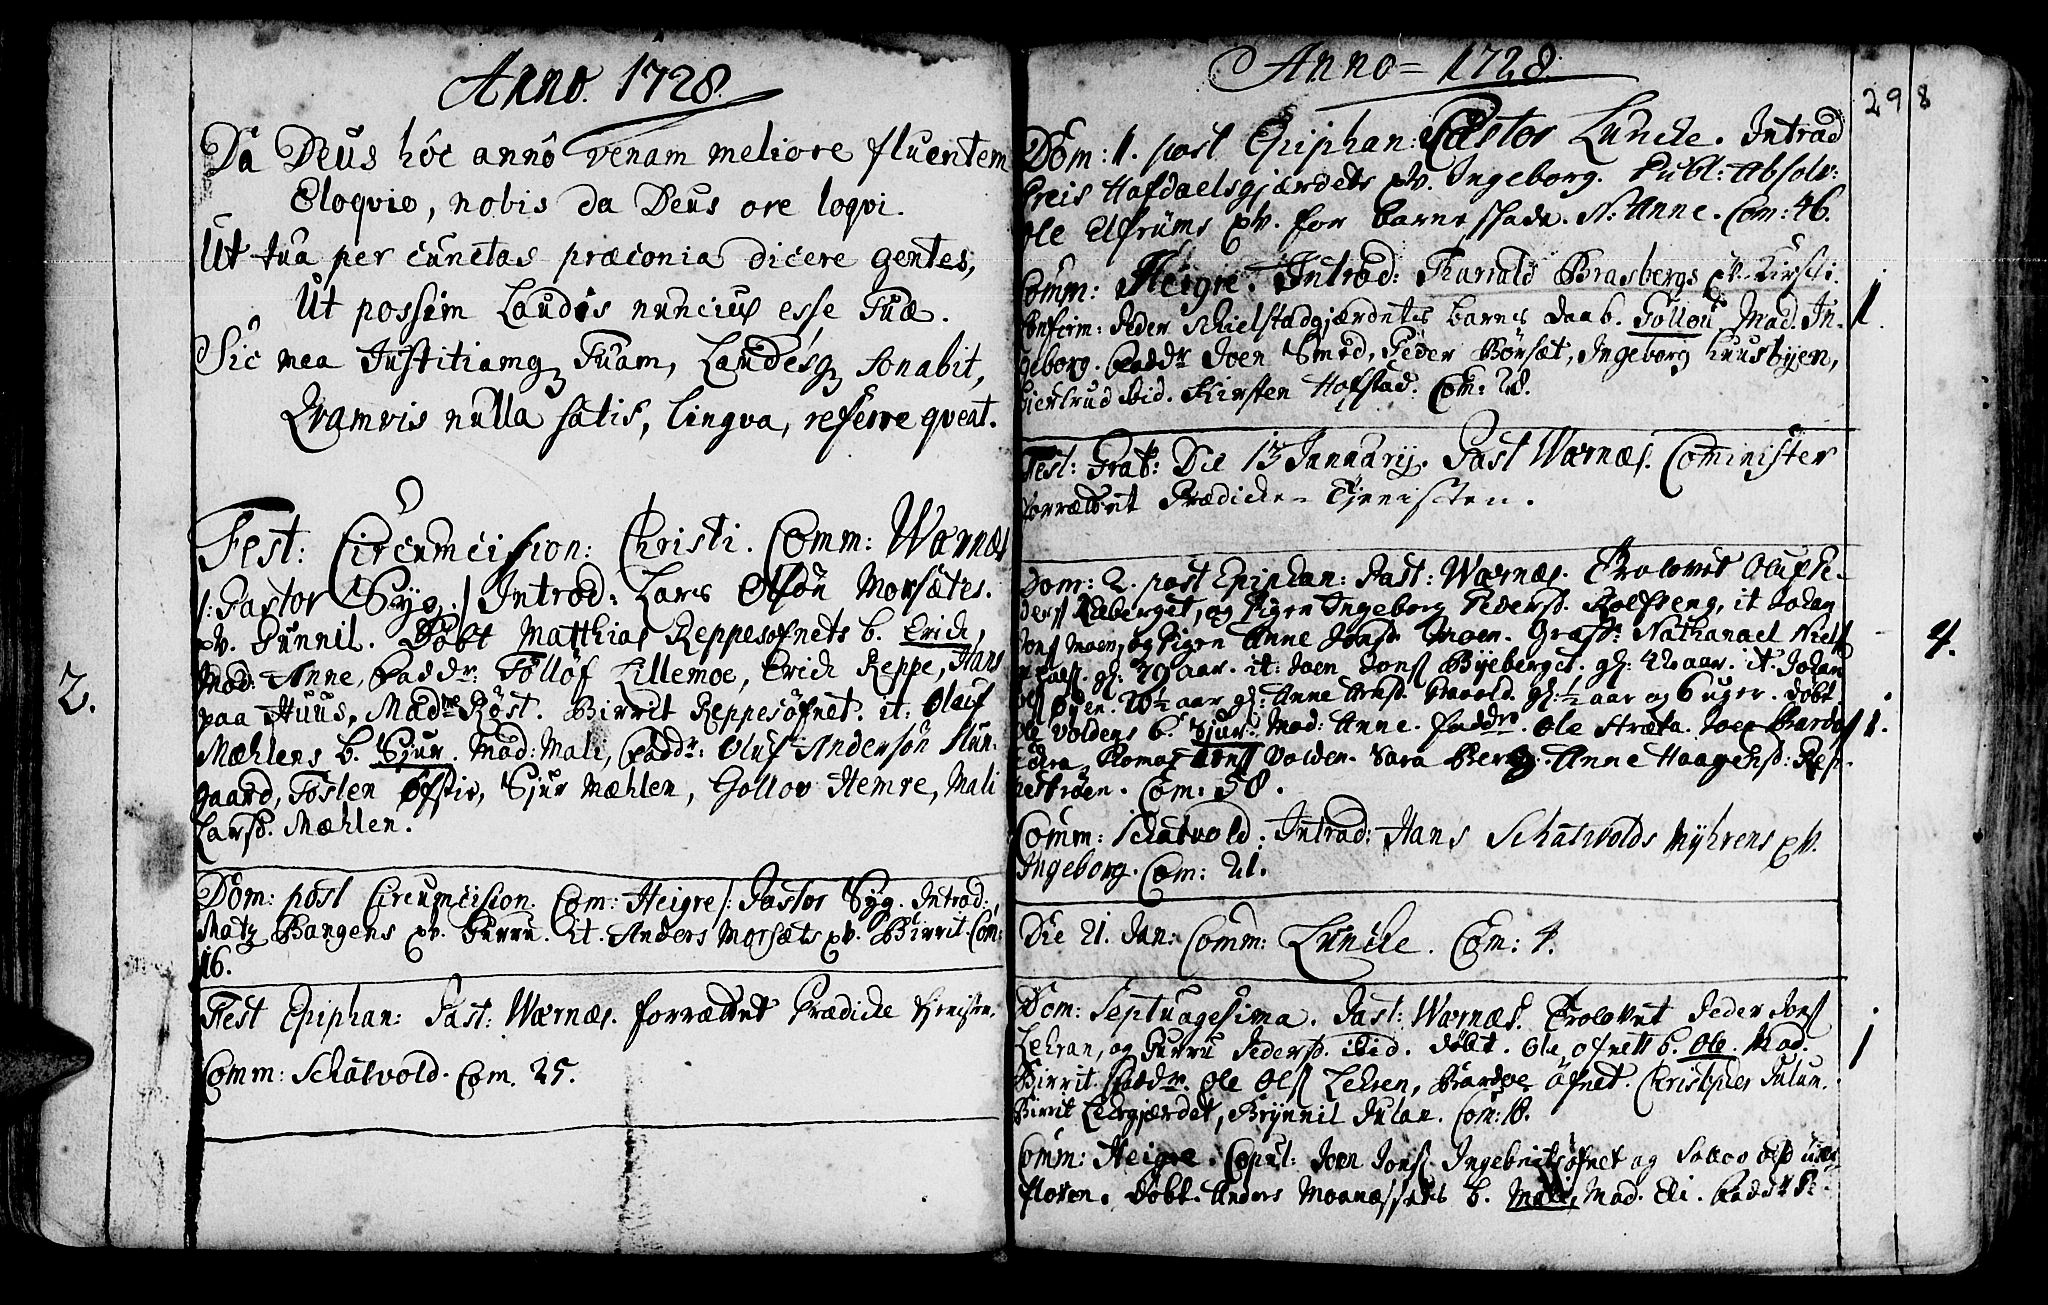 Anno. 1728.
Da Deus hôc annô venam meliore fluentem
Eloqvio, nobis da Deus ore loqvi.
Ut tua per cunctas præconia dicere gentes,
Ut possim Laudis nuncius esse Tuæ.
Sic mea Justitiamq Tuam, Laudesq sonabit,
Qvamvis nulla satis, lingva, referre qveat.
Fest: Circumcision: Christi. Comm: Wærnæs
/: Pastor Syg :/ Introd: Lars Olsön Morsætes.
pv. Gunnil. Döbt Matthias Reppesöfnets b. Erich,
Mod: Anne, Faddr: Tolløf Lillemoe, Erich Reppe, Hans
2.
paa Huus, Madme Röst. Birrit Reppesöfnet. it: Oluf
Mæhlens b. Sjur. Mod: Mali, Faddr: Oluf Andersön Hun-
gaard, Tosten Öfstie, Sjur Mæhlen, Gollov Hemre, Mali
Larsd. Mæhlen.
Dom: post Circumcision. Com: Heigre /: Pastor Syg. Introd:
Matz Bangens pv. Gurru. it. Anders Morsæts pv. Birrit. Com:
16.
Fest Epiphan: Past: Wærnæs. forrættet Prædicke tienisten.
Comm: Schatvold. Com. 25.
Anno = 1728.
298
Dom: 1. post Epiphan: Pastor Luncke. Introd
Creis Hofdaelsgjærdets pv. Ingeborg. Publ: Absolv:
Ole Elfrums pv. for barnesstade. N: Anne. Com: 46.
Comm: Heigre. Introd: Harald Brasbergs pv. Kirsti.
Confirm: Peder Schielstadgjærdets barns daab. Tollou Mod. In-
1.
geborg. Faddr Joen Smed, Peder Börsæt, Ingeborg Huusbyen,
Giertrud ibid. Kirsten Hofstad. Com: 28.
Fest: Grat: Die 13 Januarij. Past Wærnæs. Cominister
forrættet Prædicke-Tjenisten.
Dom: 2. post Epiphan: Past: Wærnæs. Trolovet Oluf Pe-
ders Raberget, og Pigen Ingeborg Pedersd. Rolfseng, it Johan
Jons Moen, og Pigen Anne Jonsd. Moen. Græst: Nathanael Niels
4.
gl: 29 aar. it: Joen Jons Byeberget. gl: 42 aar. it. Johan
Öyen. 20 1/2 aar gl: Anne Arnsd. gl: 1/2 aar og 6 uger. döbt
Ole Voldens b. Sjur. Mod: Anne. Faddr. Ole Stræta. Joen Bardos
1.
Tomas Arns Volden. Sara Berg. Anne Haagensd: Rep-
peströen. Com: 58.
Comm: Schatvold. Introd: Hans Schatvolds Myhrens pv.
Ingeborg. Com: 21.
Die 21. Jan: Comm: Luncke. Com: 4.
Dom: Septuagesima. Past: Wærnæs. Trolovet Peder Jons
Lehran, og Gurru Pedersd. ibid. döbt. Ole öfnets b. Ole. Mod.
1
Birrit. Faddr. Ole Ols Lehren, Bardoe öfnet. Christopher Julan.
Birrit Leergjærdet, Brynnil Julan. Com: 18.
Comm: Heigre. Copul: Joen Jons Ingebrictsöfnet og
floren. Döbt Anders b. Mali, Mod. Eli. Faddr